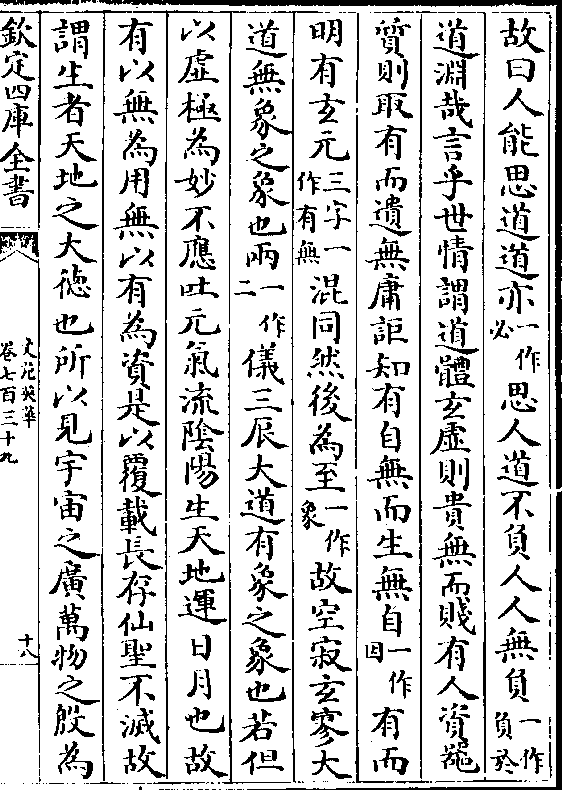 故曰人能思道道亦一作必思人道不負人人無負一作負於
道淵哉言乎世情謂道體玄虛則貴無而賤有人資器
質則取有而遺無庸詎知有自無而生無自一作因有而
明有玄元三字一作有無混同然後為至一作象故空寂玄寥大
道無象之象也兩一作二儀三辰大道有象之象也若但
以虛極為妙不應吐元氣流陰陽生天地運日月也故
有以無為用無以有為資是以覆載長存仙聖不滅故
謂生者天地之大德也所以見宇宙之廣萬物之殷為
欽定四庫全書
文苑英華
卷七百三十九
十八